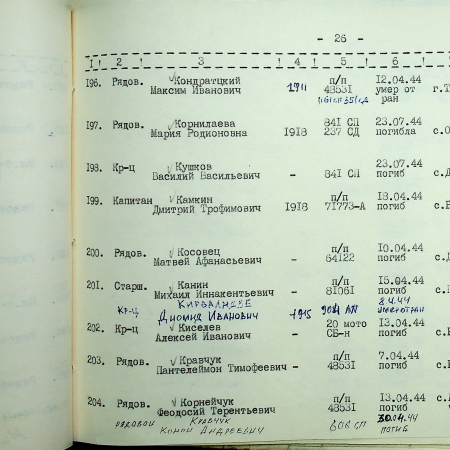 - 26 -
1 2 3 4 5 6
196. Рядов. Кондратцкий п/п 12.04.44
Максим Иванович 1911 48531 умер от г.Т
1161 СП 351 СД ран
197. Рядов. Корнилаева 841 СП 23.07.44
Мария Родионовна 1918 237 СД погибла с.О
198. Кр-ц Кушков 23.07.44
Василий Васильевич - 841 СП погиб с.Д
199. Капитан Камкин п/п 18.04.44
Дмитрий Трофимович 1918 71773-А погиб
200. Рядов. Косовец п/п 10.04.44
Матвей Афанасьевич - 64122 погиб с.Д
201. Старш. Канин п/п 15.04.44
Михаил Иннакентьевич - 81061 погиб
Кирвалидзе 8.4.44
Кр-ц Диомид Иванович 1915 904 АП умер от ран
202. Кр-ц Киселев 20 мото 13.04.44
Алексей Иванович - СБ-н погиб
203. Рядов. Кравчук п/п 7.04.44
Пантелеймон Тимофеевич - 48531 погиб
204. Рядов. Корнейчук п/п 13.04.44
Феодосий Терентьевич 48531 погиб
рядовой Кравчук 30.04.44
Конон Андреевич 606 СП погиб